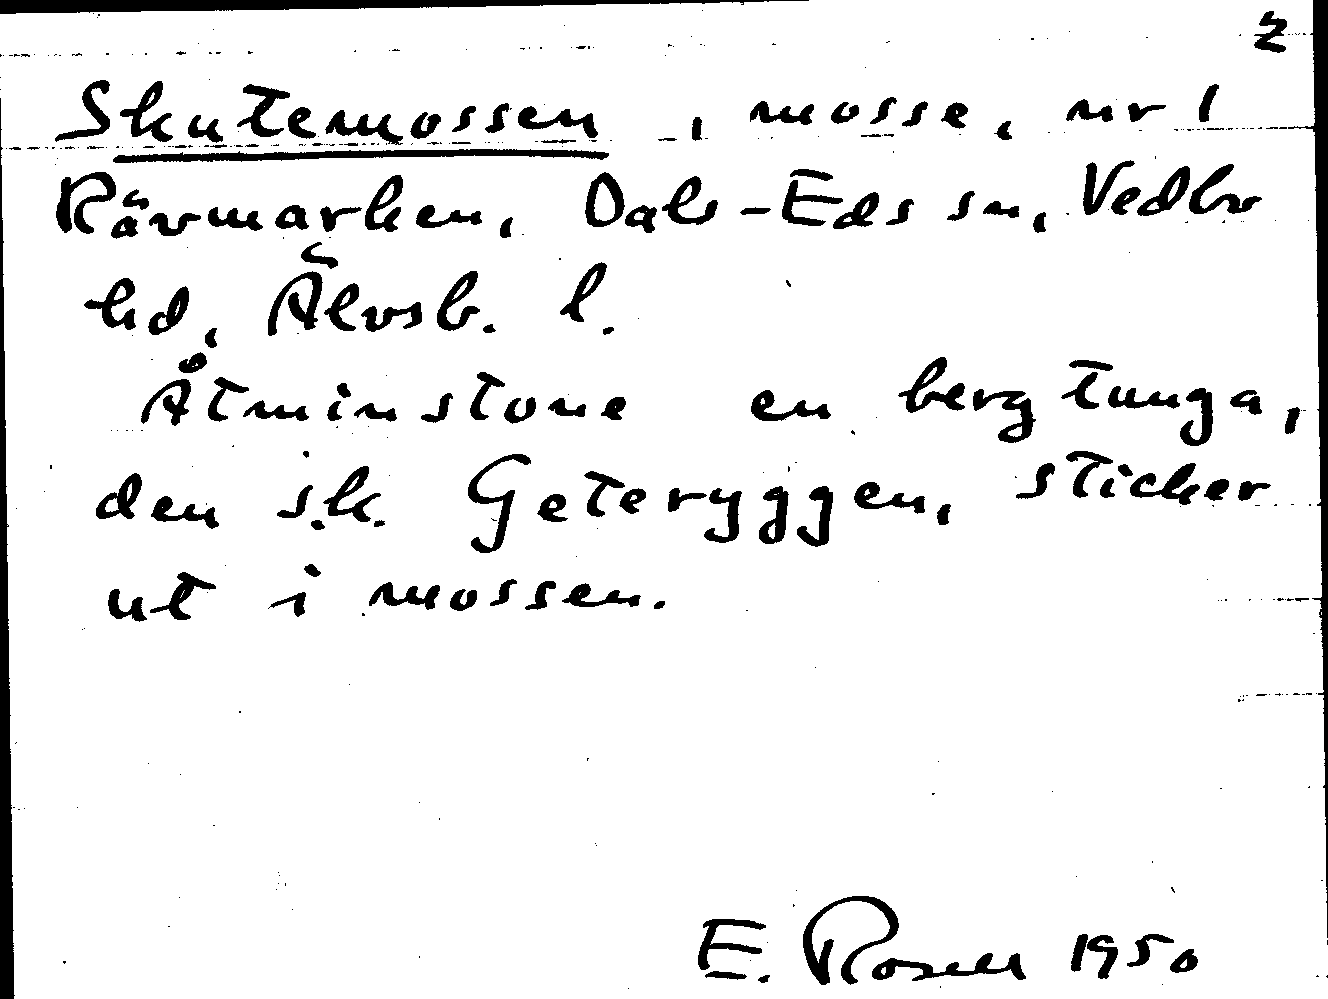 2
Skutemossen, mosse, nr 1
Rävmarken, Dals-Eds sn, Vedbo
hd, Älvsb. l.
Åtminstone en bergtunga,
den s.k. Geteryggen, sticker
ut i mossen.
E. Rosell 1950